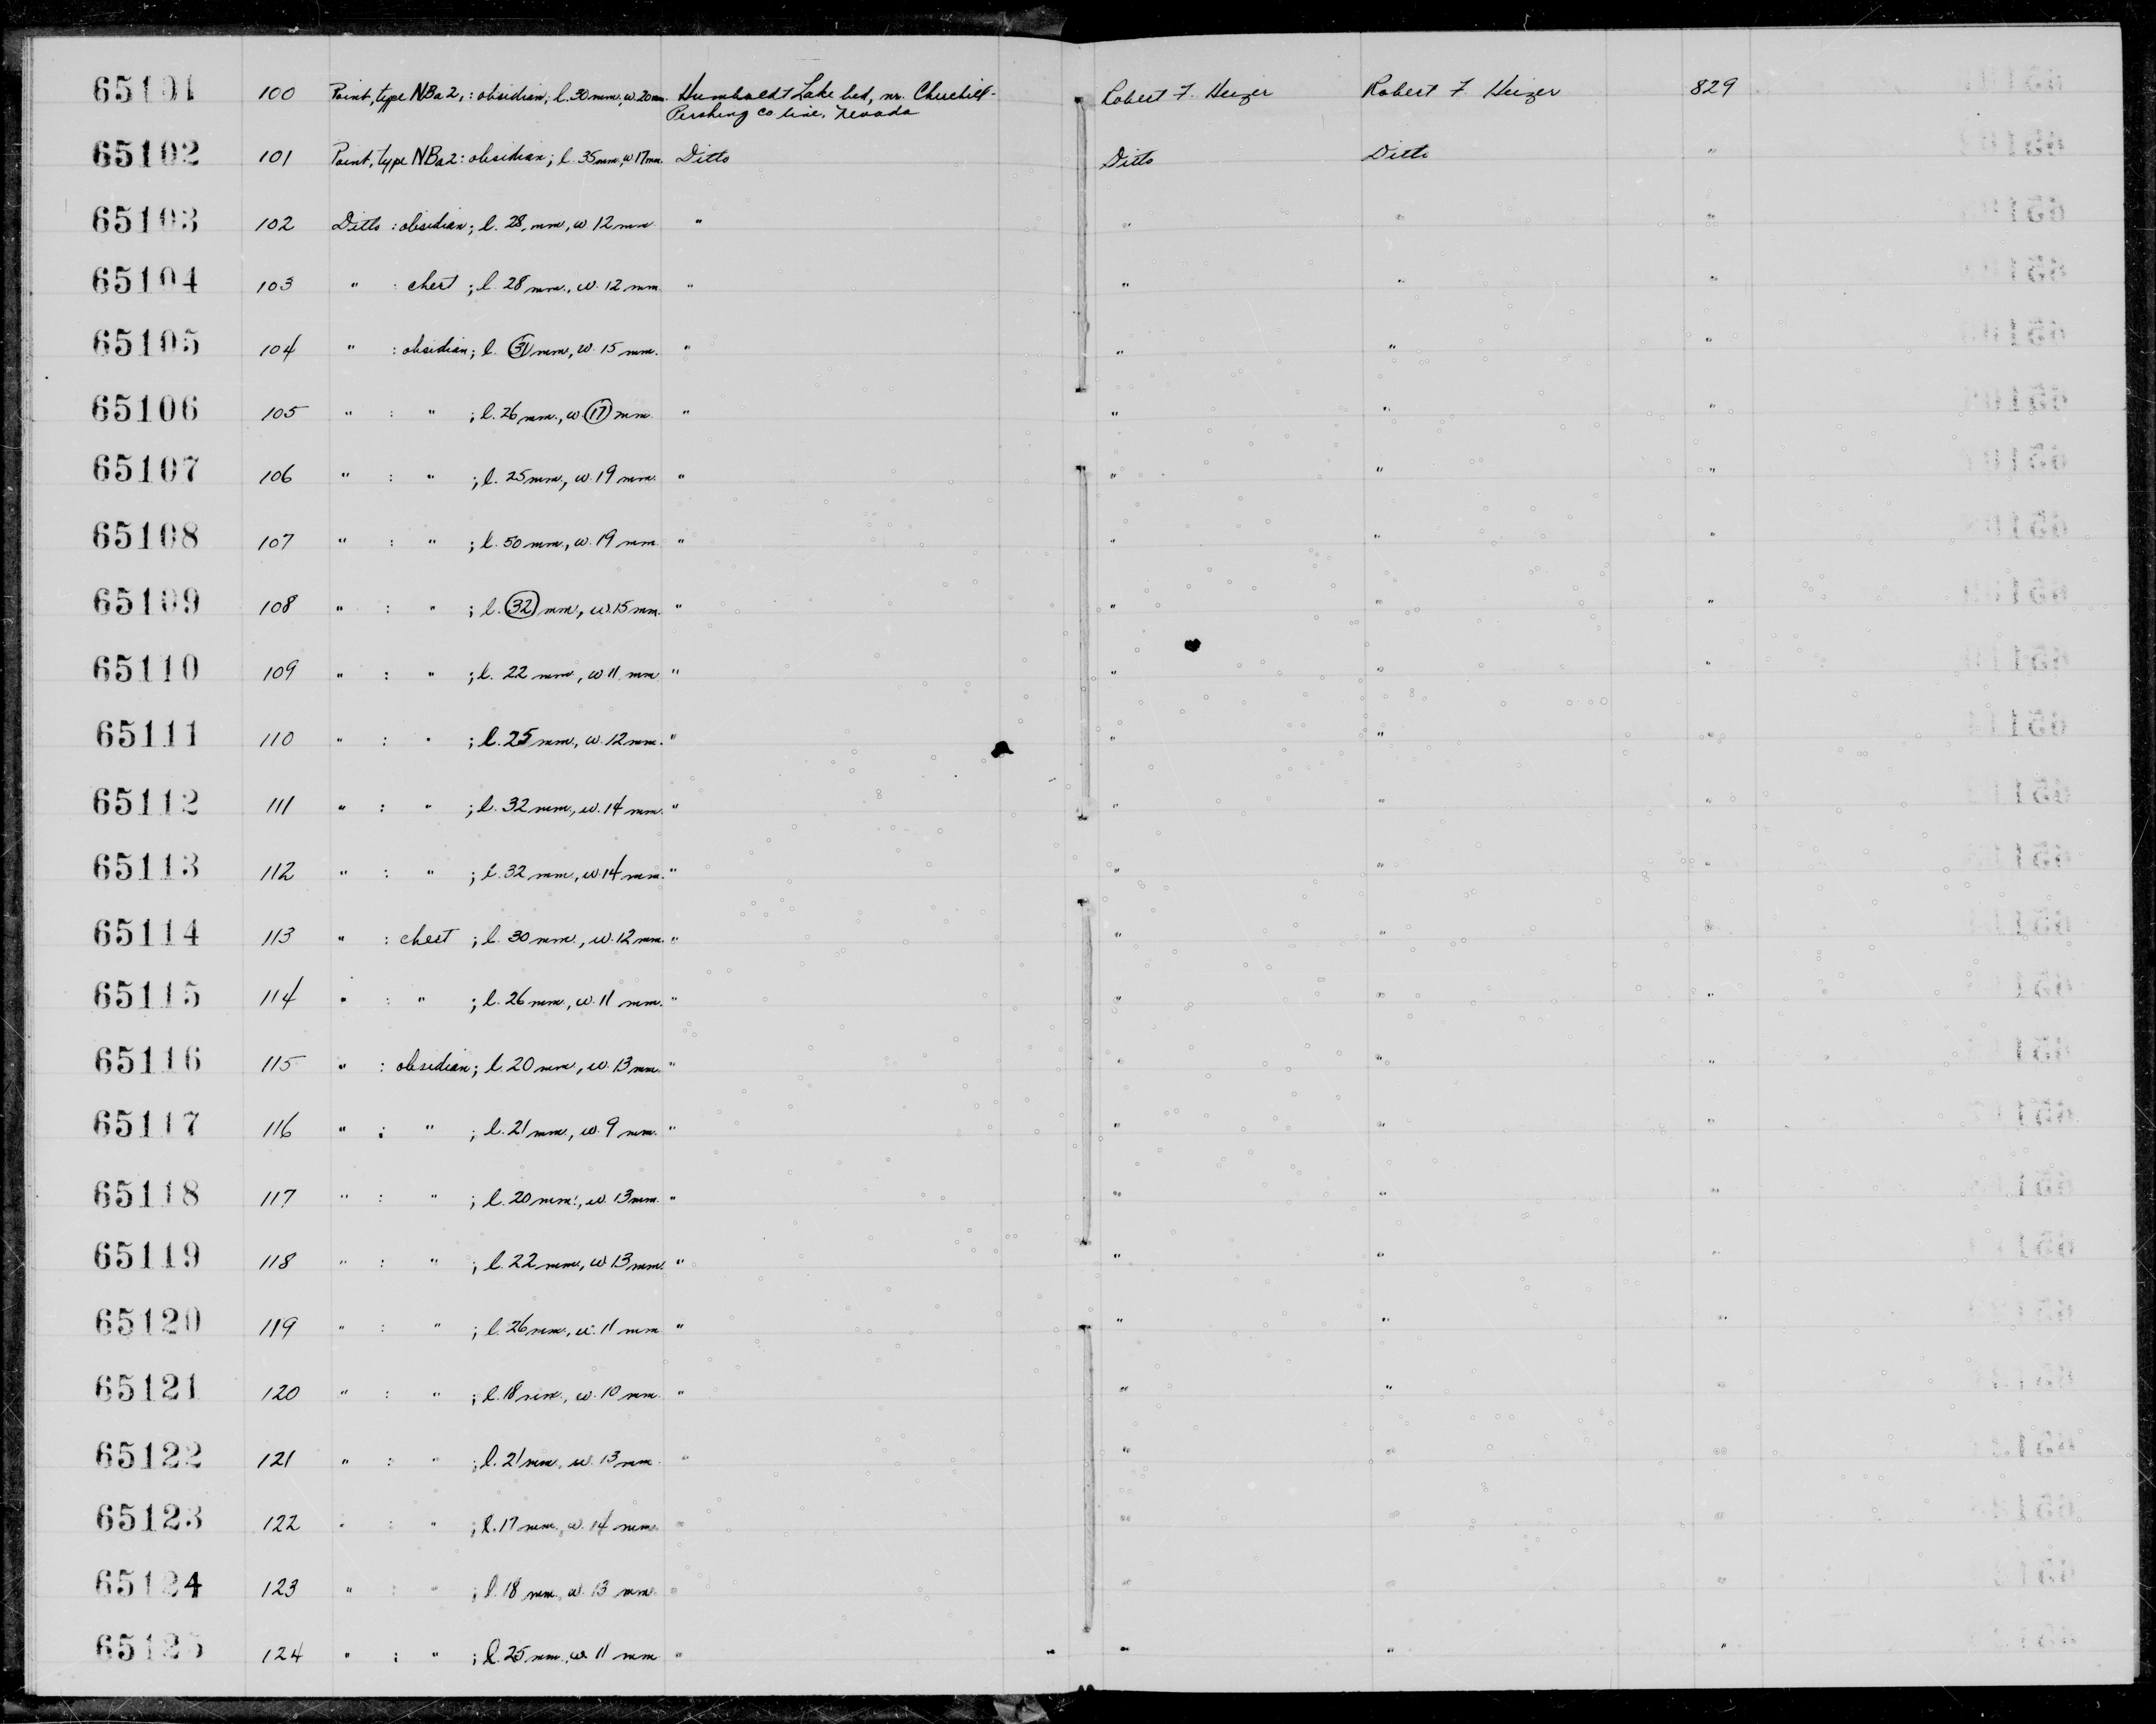 65101 100 Point, type NBa2,: obsidian; l. 30 mm, w. 20 mm. Humboldt Lake bed, nr. Churchill- Robert F. Heizer Robert F. Heizer 829
Pershing co line, Nevada
65102 101 Point, type NBa2: obsidian; l. 35 mm, w 17 mm. Ditto Ditto Ditto "
65103 102 Ditto : obsidian; l. 28, mm, w 12 mm " " " "
65104 103 " : chert ; l. 28 mm., w. 12 mm. " " " "
65105 104 " : obsidian; l. 31 mm, w. 15 mm. " " " "
65106 105 " : " ; l. 26 mm., w 17 mm. " " " "
65107 106 " : " ; l. 25 mm, w. 19 mm. " " " "
65108 107 " : " ; l. 50 mm, w. 19 mm. " " " "
65109 108 " : " ; l. 32 mm, w. 15 mm. " " " "
65110 109 " : " ; l. 22 mm, w 11 mm. " " " "
65111 110 " : " ; l. 25 mm, w. 12 mm. " " " "
65112 111 " : " ; l. 32 mm, w. 14 mm. " " " "
65113 112 " : " ; l. 32 mm, w. 14 mm. " " " "
65114 113 " : chert ; l. 30 mm., w. 12 mm. " " " "
65115 114 " : " ; l. 26 mm, w. 11 mm. " " " "
65116 115 " : obsidian; l. 20 mm, w. 13 mm. " " " "
65117 116 " : " ; l. 21 mm, w. 9 mm. " " " "
65118 117 " : " ; l. 20 mm., w. 13 mm. " " " "
65119 118 " : " ; l. 22 mm, w 13 mm. " " " "
65120 119 " : " ; l. 26 mm, w. 11 mm " " " "
65121 120 " : " ; l. 18 mm, w. 10 mm " " " "
65122 121 " : " ; l. 21 mm, w. 13 mm. " " " "
65123 122 " : " ; l. 17 mm, w. 14 mm. " " " "
65124 123 " : " ; l. 18 mm, w. 13 mm. " " " "
65125 124 " : " ; l. 25 mm, w 11 mm " " " "